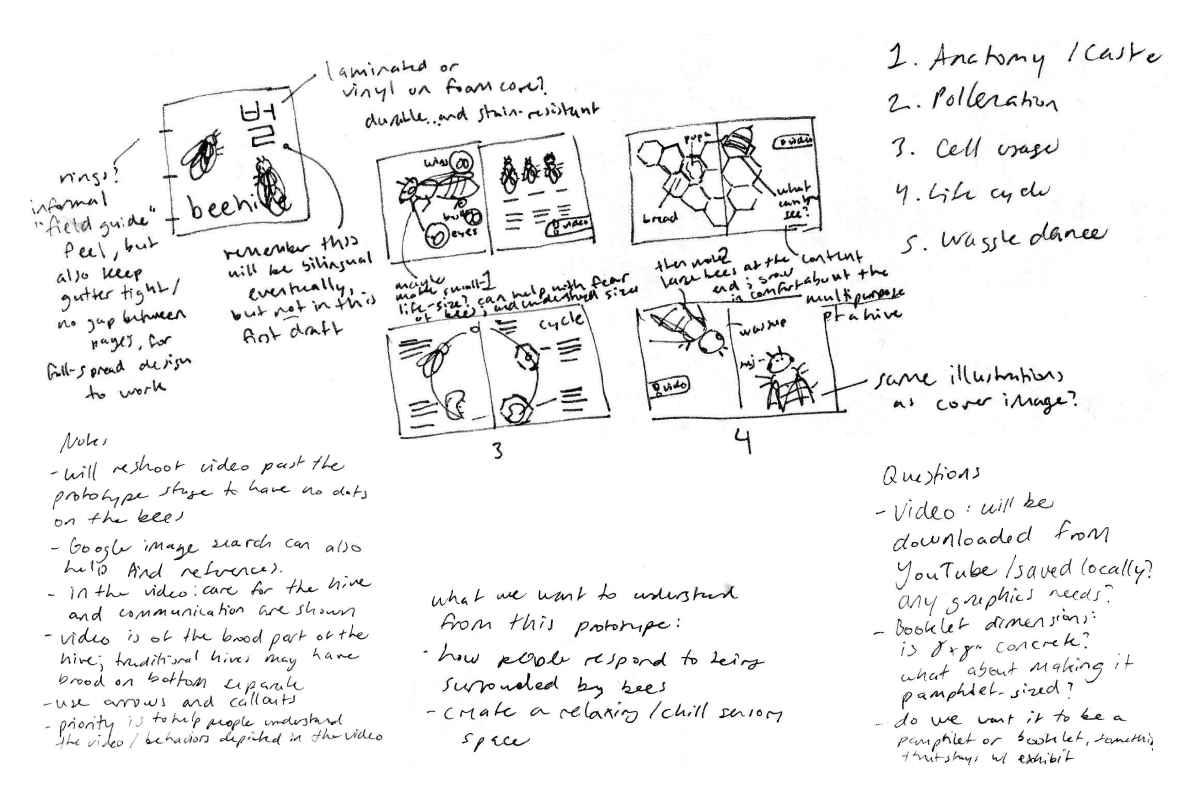 laminated or
vinyl on foam core?
durable.. and stain-resistant
벌
beehive
rings?
informal
"field guide"
feel, but
also keep
gutter tight/
no gap between
pages, for
full-spread design
to work
remember this
will be bilingual
eventually,
but not in this
first draft
wing
eyes
video
maybe
make small-
life-size? can help with fear
of bees; and understand sizes
pupa
bread
video
what
can you
see?
then make
large bees at the
end; grow
in comfort about the
content
multipurpose
of a hive
cycle
3
video
same illustrations
as cover image?
4
1. Anatomy / Caste
2. Polleration
3. Cell usage
4. Life cycle
5. Waggle dance
Notes
- will reshoot video past the
prototype stage to have no dots
on the bees
- Google image search can also
help find references.
- in the video: care for the hive
and communication are shown
- video is of the brood part of the
hive; traditional hives may have
brood on bottom separate
- use arrows and callouts
- priority is to help people understand
the video / behaviors depicted in the video
what we want to understand
from this prototype:
- how people respond to being
surrounded by bees
- create a relaxing / chill sensory
space
Questions
- Video: will be
downloaded from
YouTube / saved locally?
any graphics needs?
- Booklet dimensions:
is 8x8" concrete?
what about making it
pamphlet-sized?
- do we want it to be a
pamphlet or booklet, something
that stays w/ exhibit